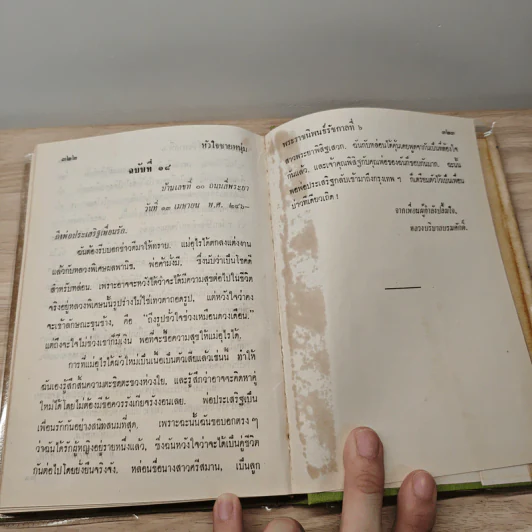 ๓๒๒
หัวใจชายหนุ่ม
ฉบับที่ ๑๘
บ้านเลขที่ ๐๐ ถนนสี่พระยา
วันที่ ๑๓ เมษายน พ.ศ. ๒๔๖–
ถึงพ่อประเสริฐเพื่อนรัก.
ฉันต้องรีบบอกข่าวดีมาให้ทราบ. แม่อุไรได้ตกลงแต่งงาน
แล้วกับหลวงพิเศษผลพานิช, พ่อค้ามั่งมี. ซึ่งนับว่าเป็นโชคดี
สำหรับหล่อน. เพราะอาจจะหวังได้ว่าจะได้มีความสุขต่อไปในชีวิต
จริงอยู่หลวงพิเศษนั้นรูปร่างไม่ใช่เทวดาถอดรูป, แต่หวังใจว่าคง
จะเข้าลักษณะขุนช้าง, คือ “ถึงรูปชั่วใจช่วงเหมือนดวงเดือน.”
แต่ถึงจะใจไม่ช่วงเขาก็มีเงิน พอที่จะซื้อความสุขให้แม่อุไรได้.
การที่แม่อุไรได้ผัวใหม่เป็นเนื้อเป็นตัวเสียแล้วเช่นนี้ ทำให้
ฉันเองรู้สึกสิ้นความตะขิดตะขวงห่วงใย, และรู้สึกว่าอาจจะคิดหาคู่
ใหม่ได้โดยไม่ต้องมีข้อควรรังเกียจรุงรังเลย. พ่อประเสริฐเป็น
เพื่อนรักกันอย่างสนิทสนมที่สุด, เพราะฉะนั้นฉันขอบอกตรง ๆ
ว่าฉันได้รักผู้หญิงอยู่รายหนึ่งแล้ว, ซึ่งฉันหวังใจว่าจะได้เป็นคู่ชีวิต
กันต่อไปโดยยั่งยืนจริงจัง. หล่อนชื่อนางสาวศรีสมาน, เป็นลูก
พระราชนิพนธ์รัชกาลที่ ๖
สาวพระยาพิสิฐเสวก. ฉันกับหล่อนได้คุ้นเคยพูดจากันเป็นที่ต้องใจ
กันแล้ว, และเจ้าคุณพิสิฐกับคุณพ่อของฉันก็ชอบกันมาก. ฉะนั้น
พอพ่อประเสริฐกลับเข้ามาถึงกรุงเทพ ๆ ก็เตรียมตัวไว้เป็นเพื่อน
บ่าวทีเดียวเถิด !
จากเพื่อนผู้กำลังปลื้มใจ,
หลวงบริบาลบรมศักดิ์.